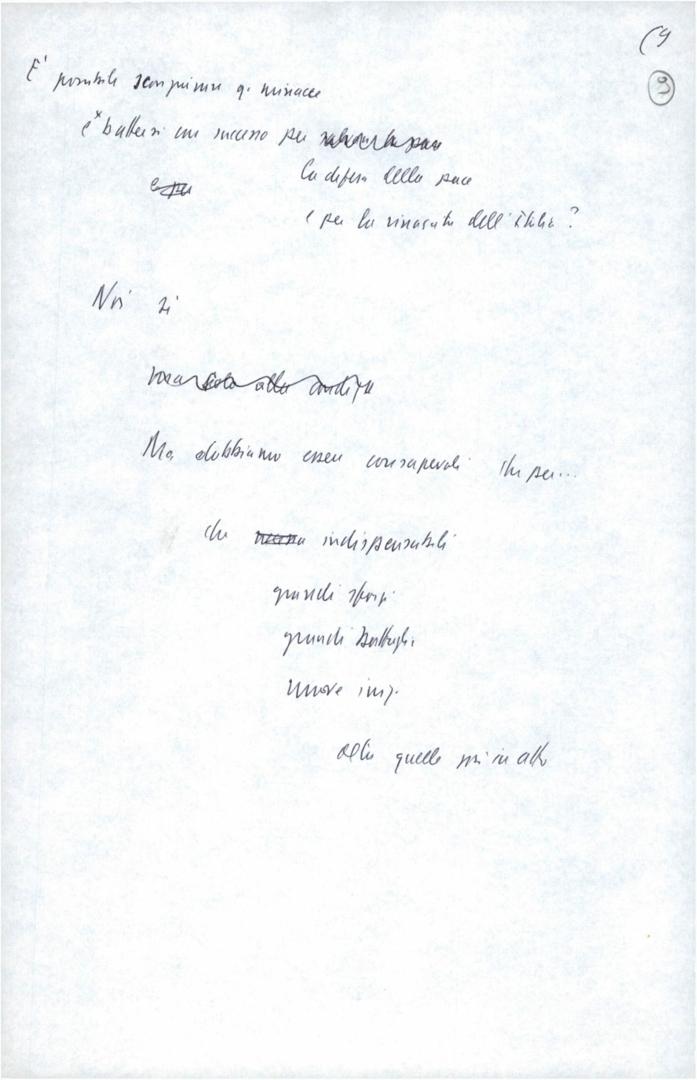 9
E' possibile scongiurare q. minacce
e battersi con successo per
la difesa della pace
e per la rinascita dell'Italia?
Noi sì
Ma dobbiamo essere consapevoli che per...
che indispensabili
grandi sforzi
grandi battaglie
nuove iniz.
oltre quelle già in atto